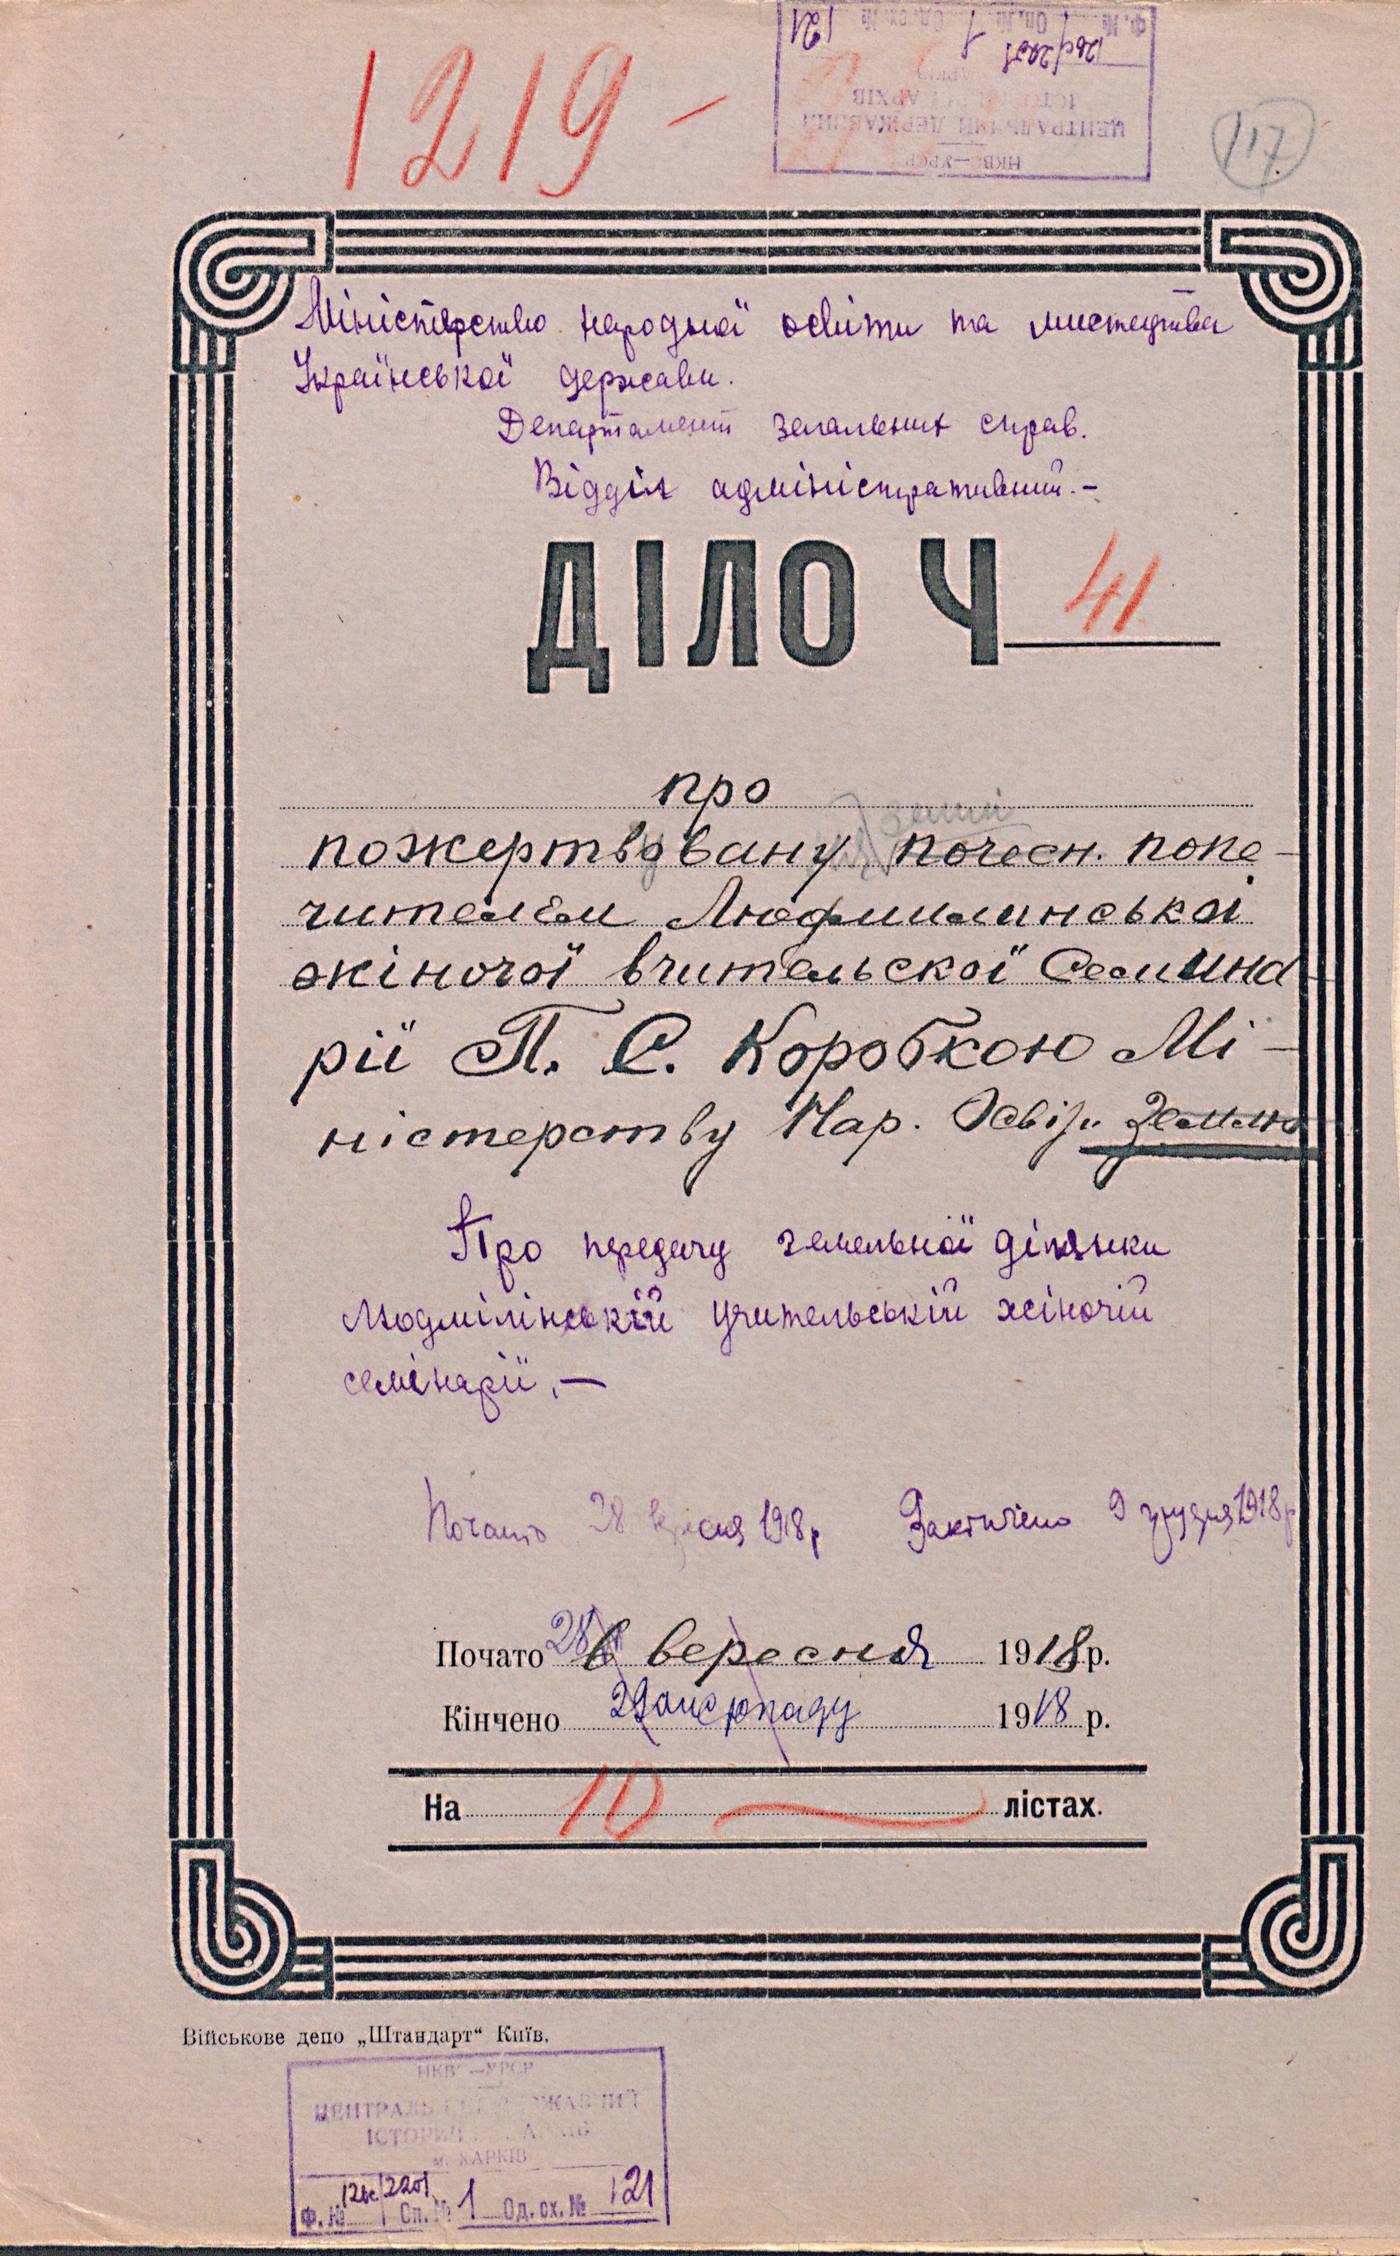 1219 -
117
Міністерство народної освіти та мистецтва
Української держави.
Департамент загальних справ.
Відділ адміністративний.-
ДІЛО Ч 41
про
землі
пожертвовану почесн. попе-
чителем Людмилинської
жіночої вчительскої Семина-
рії П. С. Коробкою Мі-
ністерству Нар. Освіти Землю
Про передачу земельної ділянки
Людмілінській учительській жіночій
семінарії.-
Почато 28 вересня 1918 р Закінчено 9 грудня 1918 р
Почато 28 вересня 1918 р.
Кінчено 29 листопаду 1918 р.
На 10 лістах.
Військове депо „Штандарт“ Київ.
НКВС—УРСР
ЦЕНТРАЛЬНИЙ ДЕРЖАВНИЙ
ІСТОРИЧНИЙ АРХІВ
м. ХАРКІВ
Ф. № 2201 Оп. № 1 Од. сх. № 121